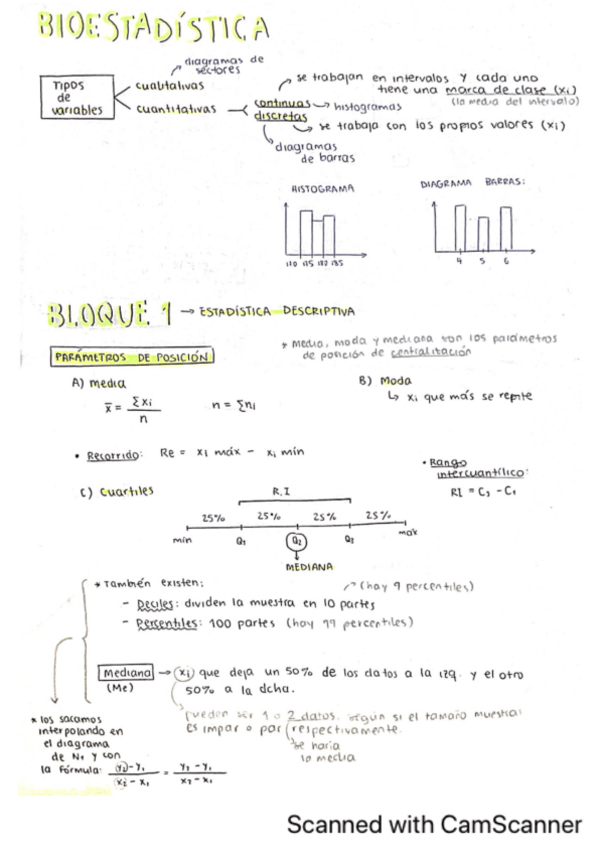 BIOESTADÍSTICA
diagramas de
sectores
Tipos
de
variables
cualitativas
cuantitativas
continuas
discretas
se trabajan en intervalos y cada uno
tiene una marca de clase (xi)
(la media del intervalo)
histogramas
se trabaja con los propios valores (xi)
diagramas
de barras
HISTOGRAMA
DIAGRAMA BARRAS:
4 5 6
BLOQUE 1 → ESTADÍSTICA DESCRIPTIVA
* Media, moda y mediana son los parámetros
de posición de centralización
PARÁMETROS DE POSICIÓN
A) media
x̄ = Σxi / n
n = Σni
B) Moda
↳ xi que más se repite
• Recorrido: Re = xi máx - xi mín
• Rango
intercuantílico:
RI = C3 - C1
C) Cuartiles
R.I
25% 25% 25% 25%
mín Q1 Q2 Q3 max
MEDIANA
* También existen:
(hay 9 percentiles)
- Deciles: dividen la muestra en 10 partes
- Percentiles: 100 partes (hay 99 percentiles)
Mediana → (xi) que deja un 50% de los datos a la izq. y el otro
(Me)
50% a la dcha.
pueden ser 1 o 2 datos, según si el tamaño muestral
es impar o par (respectivamente.
se haría
la media
* los sacamos
interpolando en
el diagrama
de Ni y con
la fórmula: (yi)-y1 / xi - x1 = y2 - y1 / x2 - x1
Scanned with CamScanner